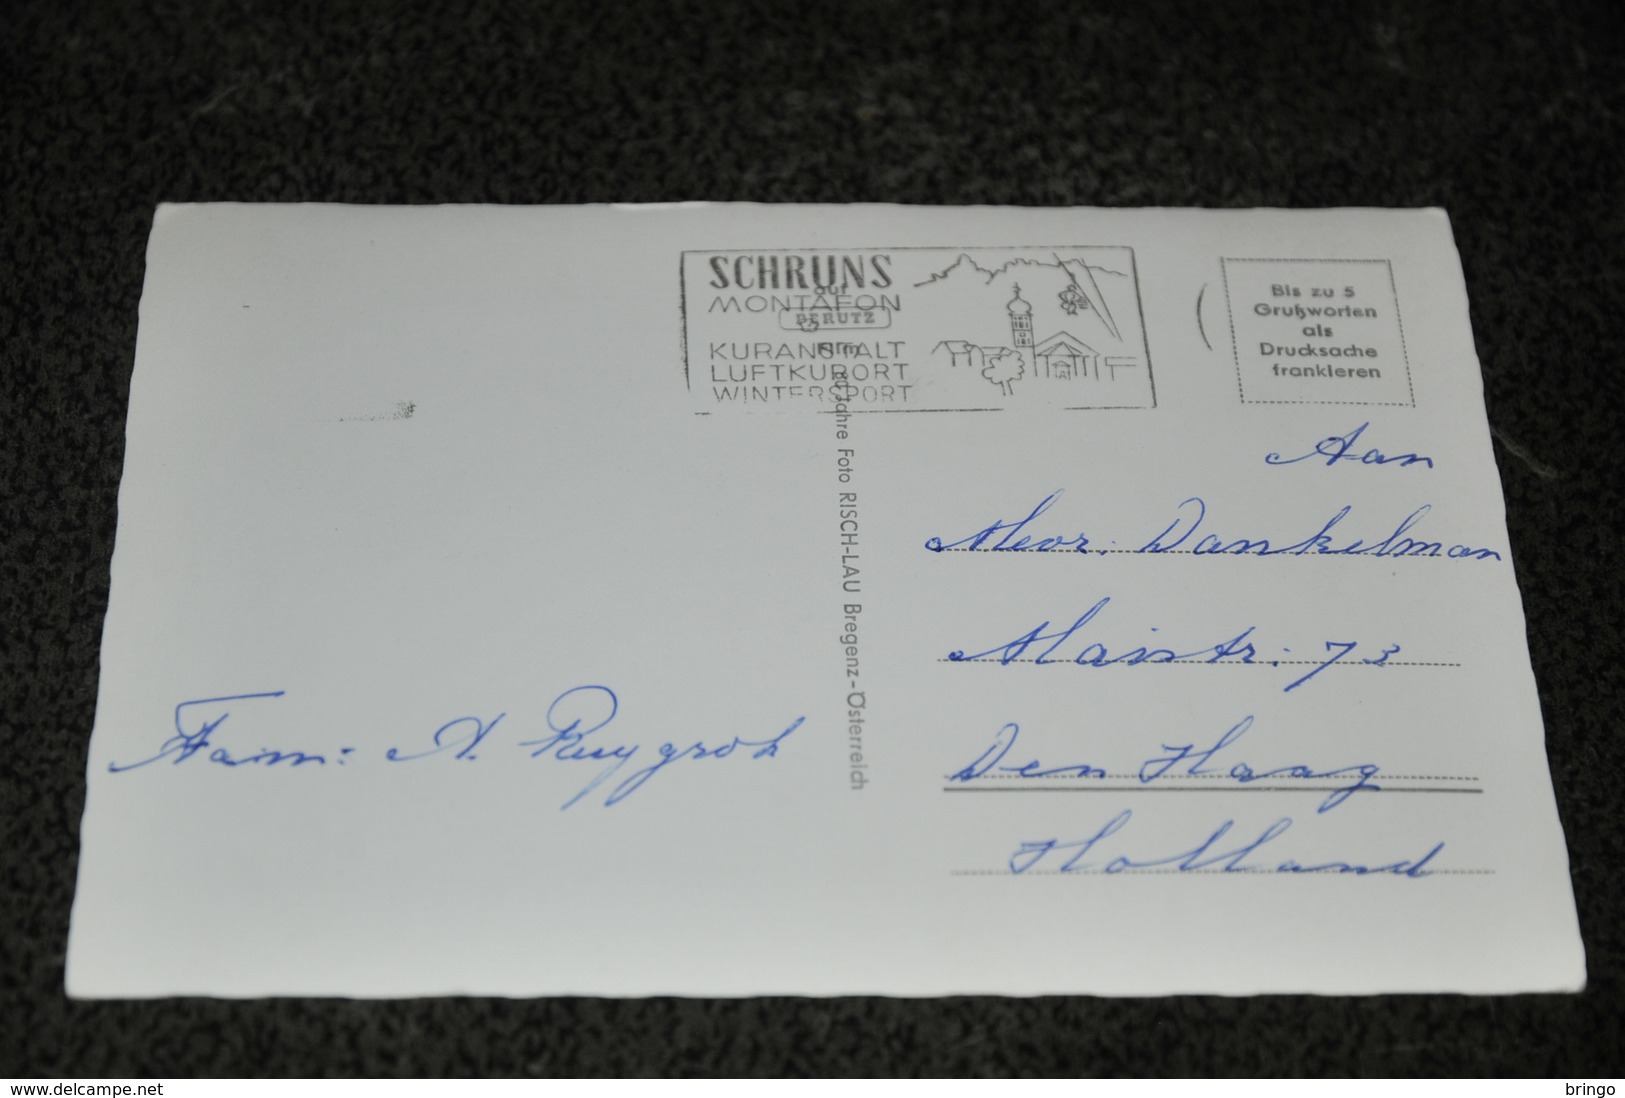 SCHRUNS
auf
MONTAFON
PERUTZ
KURANSTALT
Film
LUFTKURORT
WINTERSPORT
Bis zu 5
Grußworten
als
Drucksache
frankieren
80 Jahre Foto RISCH-LAU Bregenz-Österreich
Aan
Mevr. Dankelman
Maistr. 73
Den Haag
Holland
Fam: A. Ruygrok
www.delcampe.net
bringo